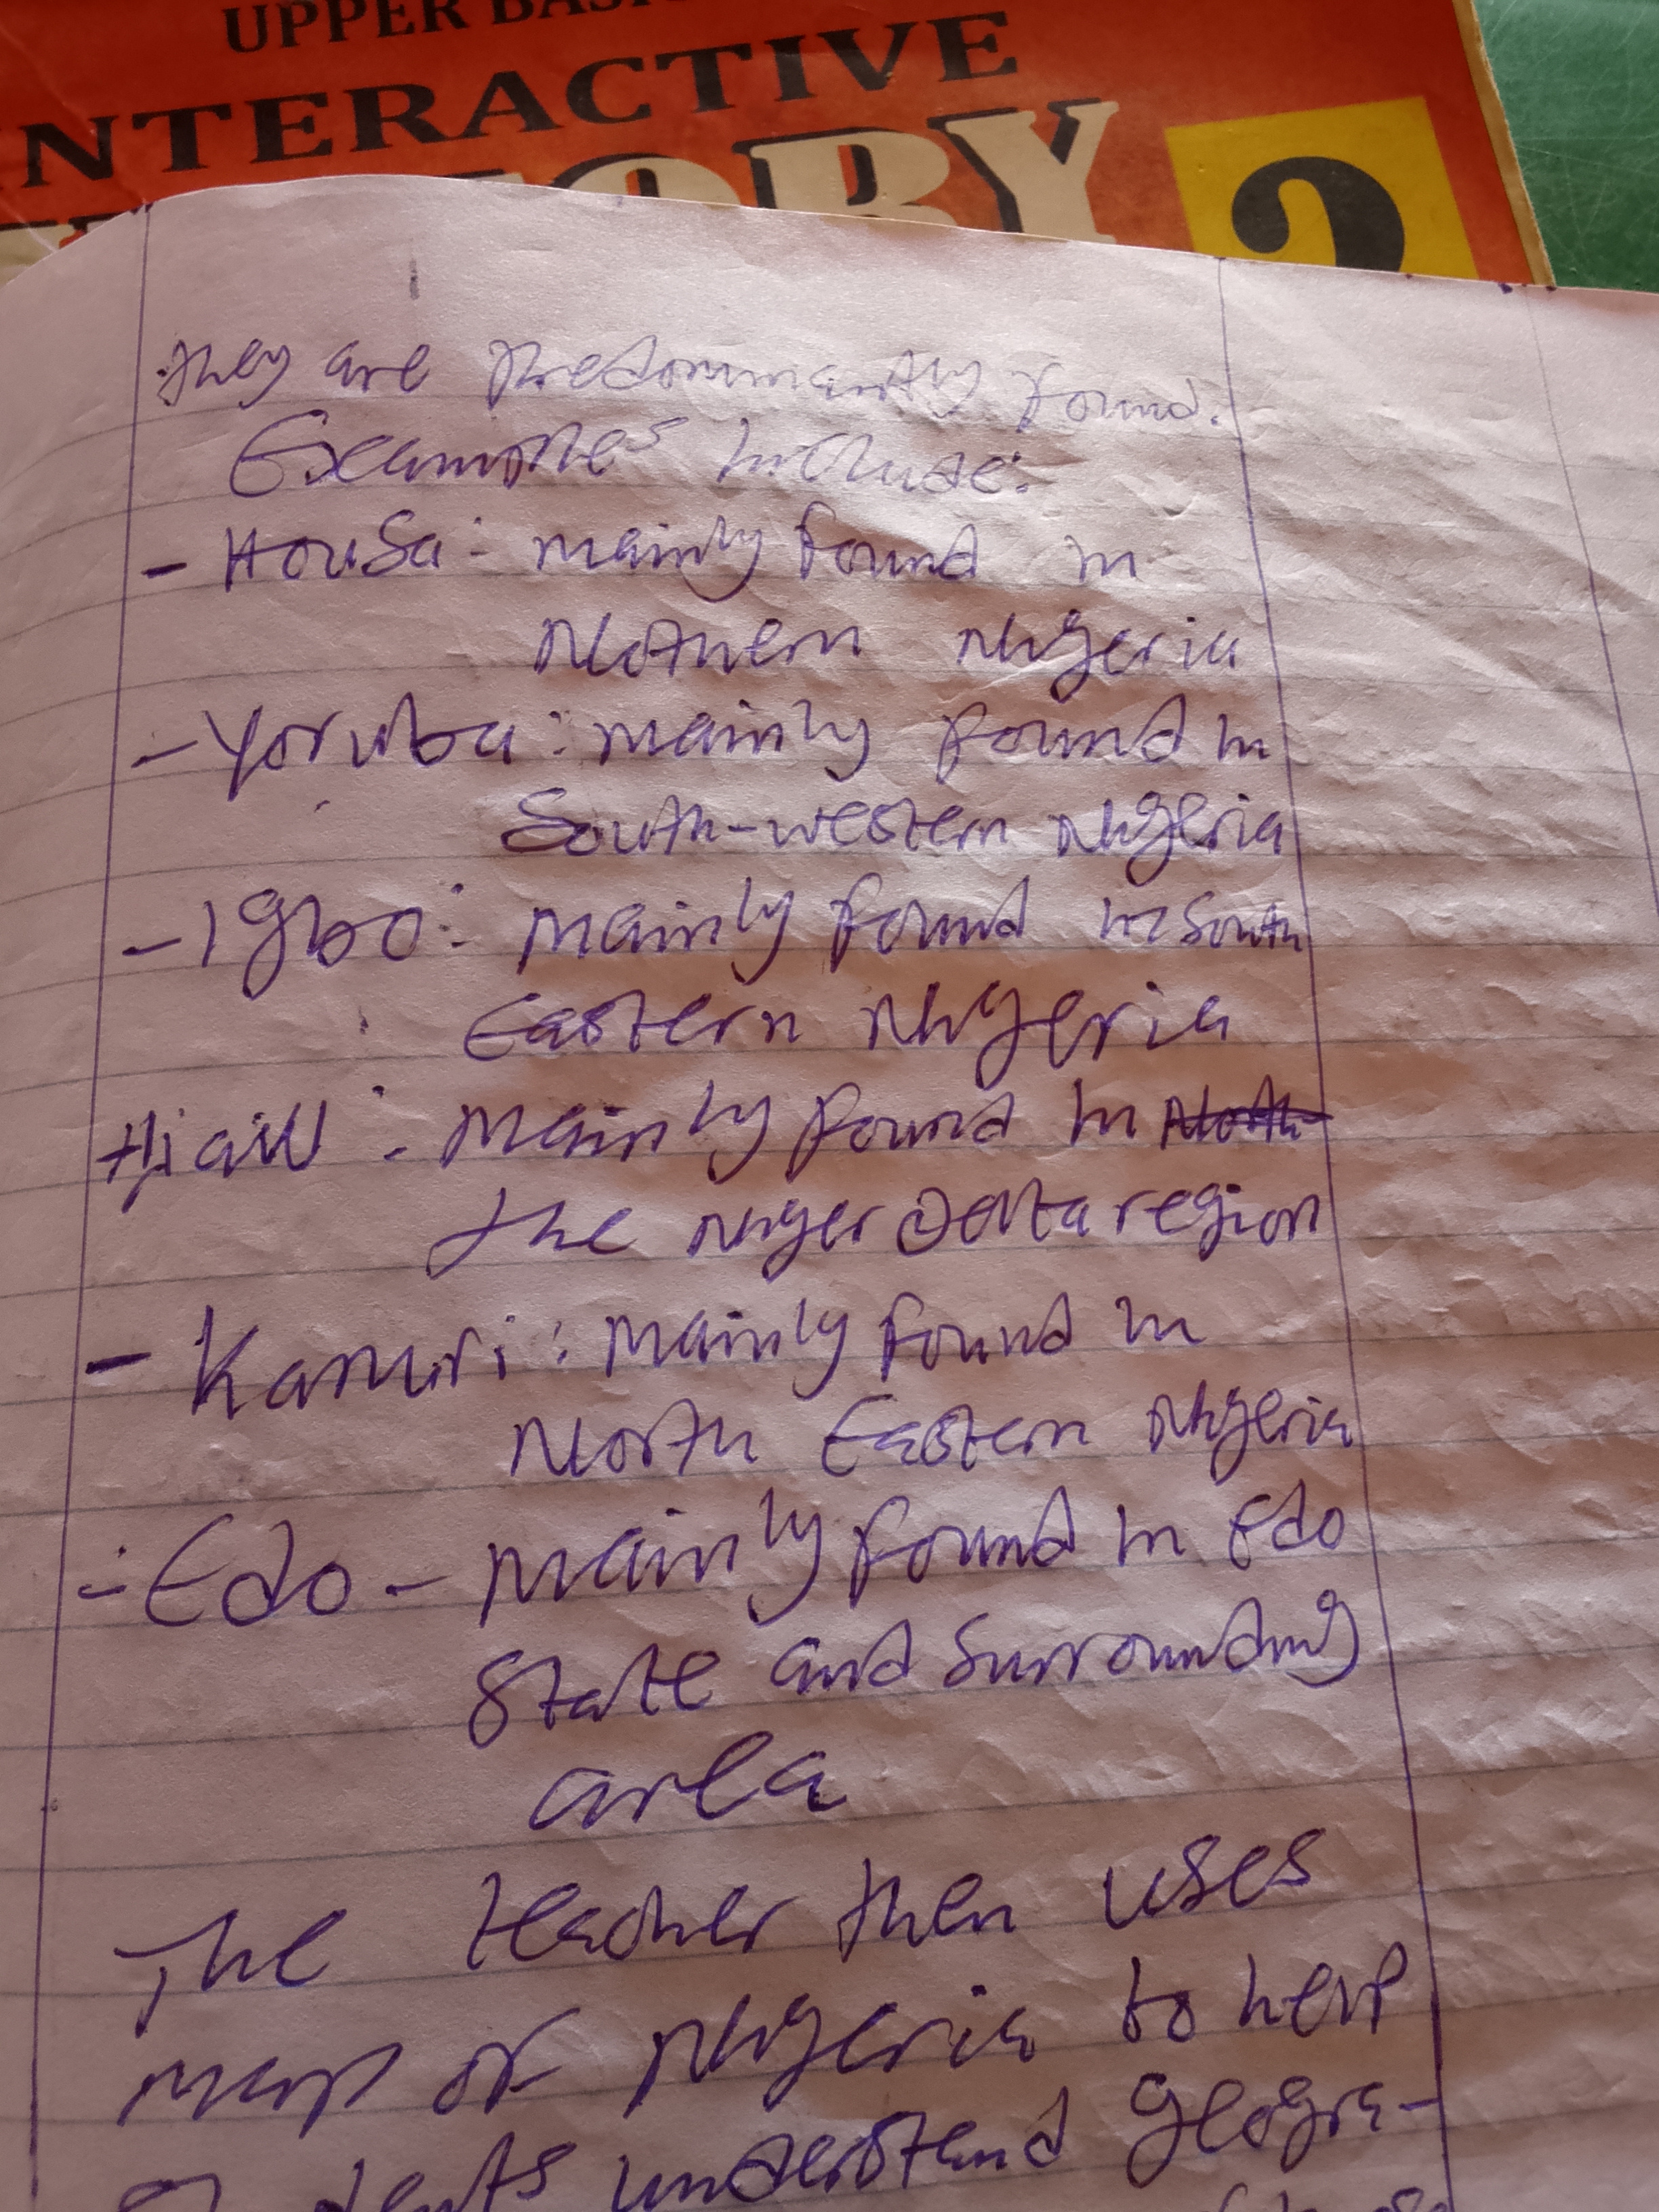 UPPER BASIC
INTERACTIVE
2
they are predominantly found.
Examples include:
- Hausa: mainly found in
Nothern Nigeria
- Yoruba: mainly found in
South-western Nigeria
- Igbo: mainly found in South
Eastern Nigeria
- Ijaw: mainly found in North
the Niger Delta region
- Kanuri: mainly found in
North Eastern Nigeria
- Edo - mainly found in Edo
State and surrounding
area
The teacher then uses
map of Nigeria to help
understand geogra-